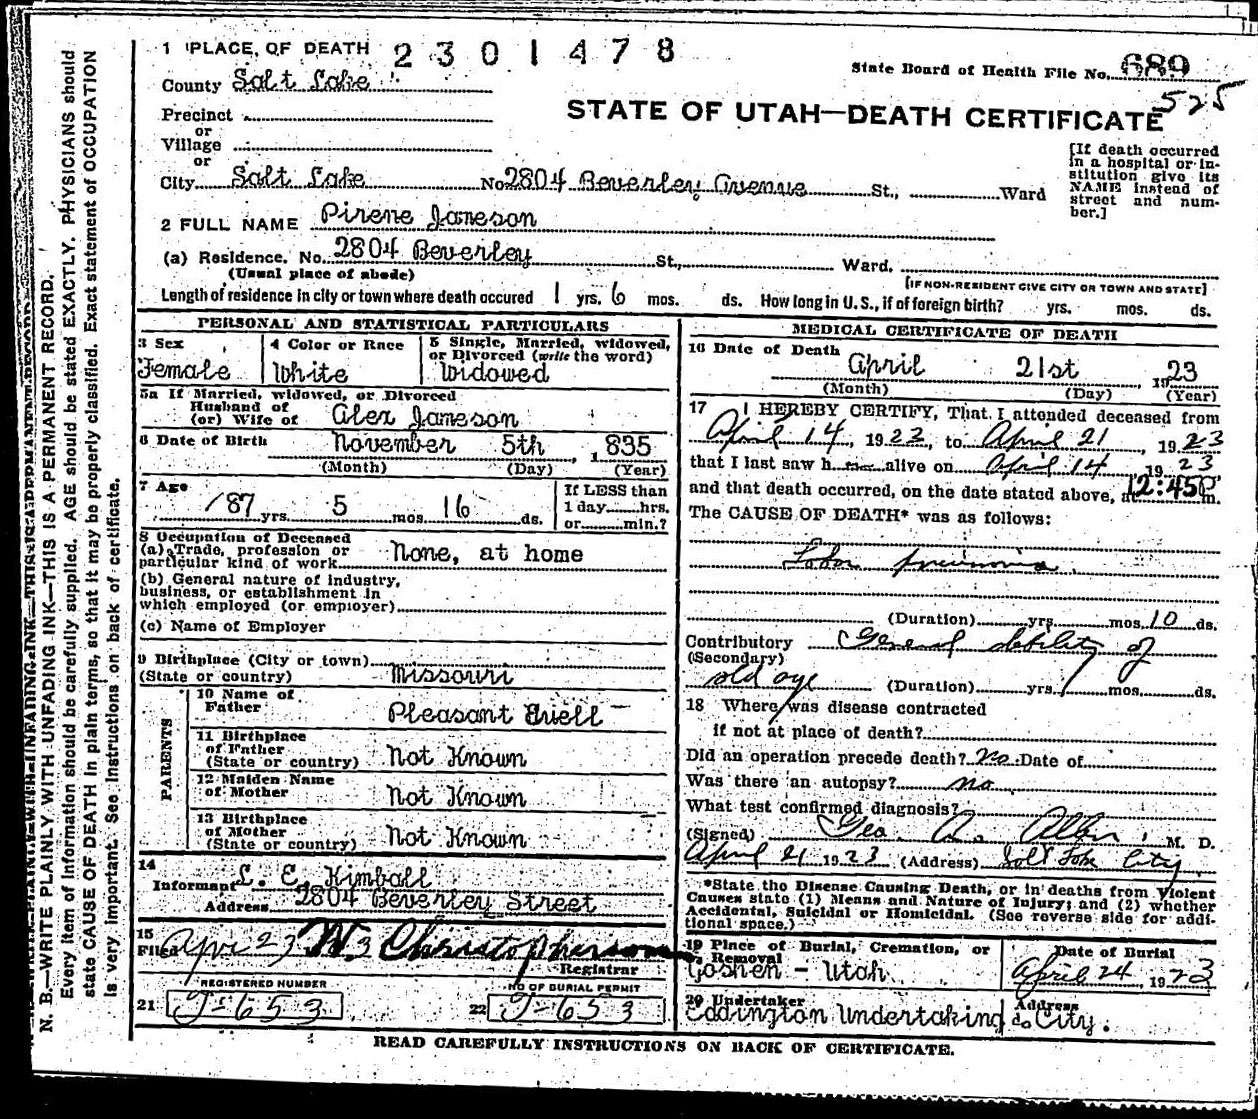 1 PLACE OF DEATH 2301478
State Board of Health File No. 689
525
County Salt Lake
STATE OF UTAH—DEATH CERTIFICATE
Precinct
or
Village
or
City Salt Lake No. 2804 Beverley Avenue St., Ward
[If death occurred in a hospital or institution give its NAME instead of street and number.]
2 FULL NAME Pirene Jameson
(a) Residence. No. 2804 Beverley St., Ward.
(Usual place of abode) [IF NON-RESIDENT GIVE CITY OR TOWN AND STATE]
Length of residence in city or town where death occured 1 yrs. 6 mos. ds. How long in U. S., if of foreign birth? yrs. mos. ds.
PERSONAL AND STATISTICAL PARTICULARS
3 Sex Female
4 Color or Race White
5 Single, Married, widowed, or Divorced (write the word) Widowed
5a If Married, widowed, or Divorced
Husband of
(or) Wife of Alex Jameson
6 Date of Birth November 5th, 1835
(Month) (Day) (Year)
7 Age 87 yrs. 5 mos. 16 ds.
If LESS than
1 day hrs.
or min.?
8 Occupation of Deceased
(a) Trade, profession or
particular kind of work None, at home
(b) General nature of industry,
business, or establishment in
which employed (or employer)
(c) Name of Employer
9 Birthplace (City or town)
(State or country) Missouri
PARENTS
10 Name of
Father Pleasant
11 Birthplace
of Father
(State or country) Not Known
12 Maiden Name
of Mother Not Known
13 Birthplace
of Mother
(State or country) Not Known
14
Informant L. E. Kimball
Address 2804 Beverley Street
15
Filed Apr 23 Christopherson
Registrar
REGISTERED NUMBER
21 J-653
NO OF BURIAL PERMIT
22 J-653
MEDICAL CERTIFICATE OF DEATH
16 Date of Death
April 21st, 1923
(Month) (Day) (Year)
17 I HEREBY CERTIFY, That I attended deceased from
April 14, 1923, to April 21 1923
that I last saw h alive on April 14 1923
and that death occurred, on the date stated above, at 12:45P m.
The CAUSE OF DEATH* was as follows:
Lobar pneumonia
(Duration) yrs. mos. 10 ds.
Contributory General debility of
(Secondary)
old age (Duration) yrs. mos. ds.
18 Where was disease contracted
if not at place of death?
Did an operation precede death? No Date of
Was there an autopsy? no
What test confirmed diagnosis?
(Signed) Geo. A. Allen M. D.
April 21 1923 (Address) Salt Lake City
*State the Disease Causing Death, or in deaths from Violent
Causes state (1) Means and Nature of Injury; and (2) whether
Accidental, Suicidal or Homicidal. (See reverse side for additional space.)
19 Place of Burial, Cremation, or
Removal
Goshen - Utah
Date of Burial
April 24 1923
20 Undertaker
Eddington Undertaking Co
Address
City.
READ CAREFULLY INSTRUCTIONS ON BACK OF CERTIFICATE.
N. B.—WRITE PLAINLY WITH UNFADING INK—THIS IS A PERMANENT RECORD.
Every item of information should be carefully supplied. AGE should be stated EXACTLY. PHYSICIANS should
state CAUSE OF DEATH in plain terms, so that it may be properly classified. Exact statement of OCCUPATION
is very important. See Instructions on back of certificate.